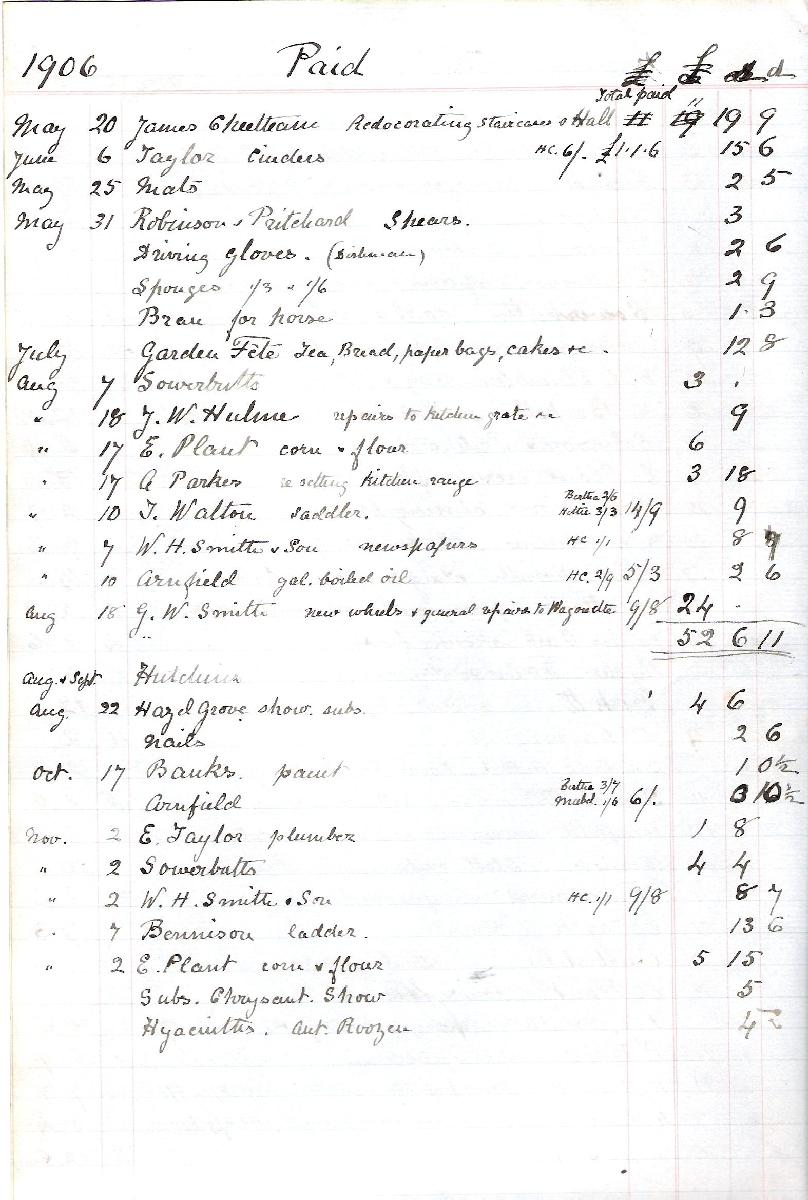 1906 Paid £ £ s d
Total paid
May 20 James Cheetham Redecorating staircases & Hall 11 19 19 9
June 6 Taylor Cinders HC. 6/. £1.1.6 15 6
May 25 Mats 2 5
May 31 Robinson & Pritchard Shears. 3
Driving gloves. 2 6
Sponges 1/3 & 1/6 2 9
Bran for horse 1.3
July Garden Fête Tea, Bread, paper bags, cakes &c. 12 8
Aug 7 Sowerbutts 3 .
" 18 J. W. Hulme repairs to kitchen grate 9
" 17 E. Plant corn & flour 6
" 17 A Parkes re setting kitchen range 3 18
" 10 T. Walton saddler. Bertha 2/6 Hettie 3/3 14/9 9
" 7 W. H. Smith & Son newspapers HC 1/1 8 7
" 10 Arnfield gal. boiled oil HC. 2/9 5/3 2 6
Aug 18 G. W. Smith new wheels & general repairs to Wagonette 9/8 24 .
52 6 11
Aug. & Sept. Hutchins
Aug. 22 Hazel Grove show. subs. 4 6
Nails 2 6
Oct. 17 Banks. paint 1 0½
Arnfield Bertha 3/7 1/6 6/. 3 10½
Nov. 2 E. Taylor plumber 1 8
" 2 Sowerbutts 4 4
" 2 W. H. Smith & Son HC. 1/1 9/8 8 7
" 7 Bennison ladder. 13 6
" 2 E. Plant corn & flour 5 15
Subs. Chrysant. Show 5
Hyacinths. Ant. Roozen 4 2